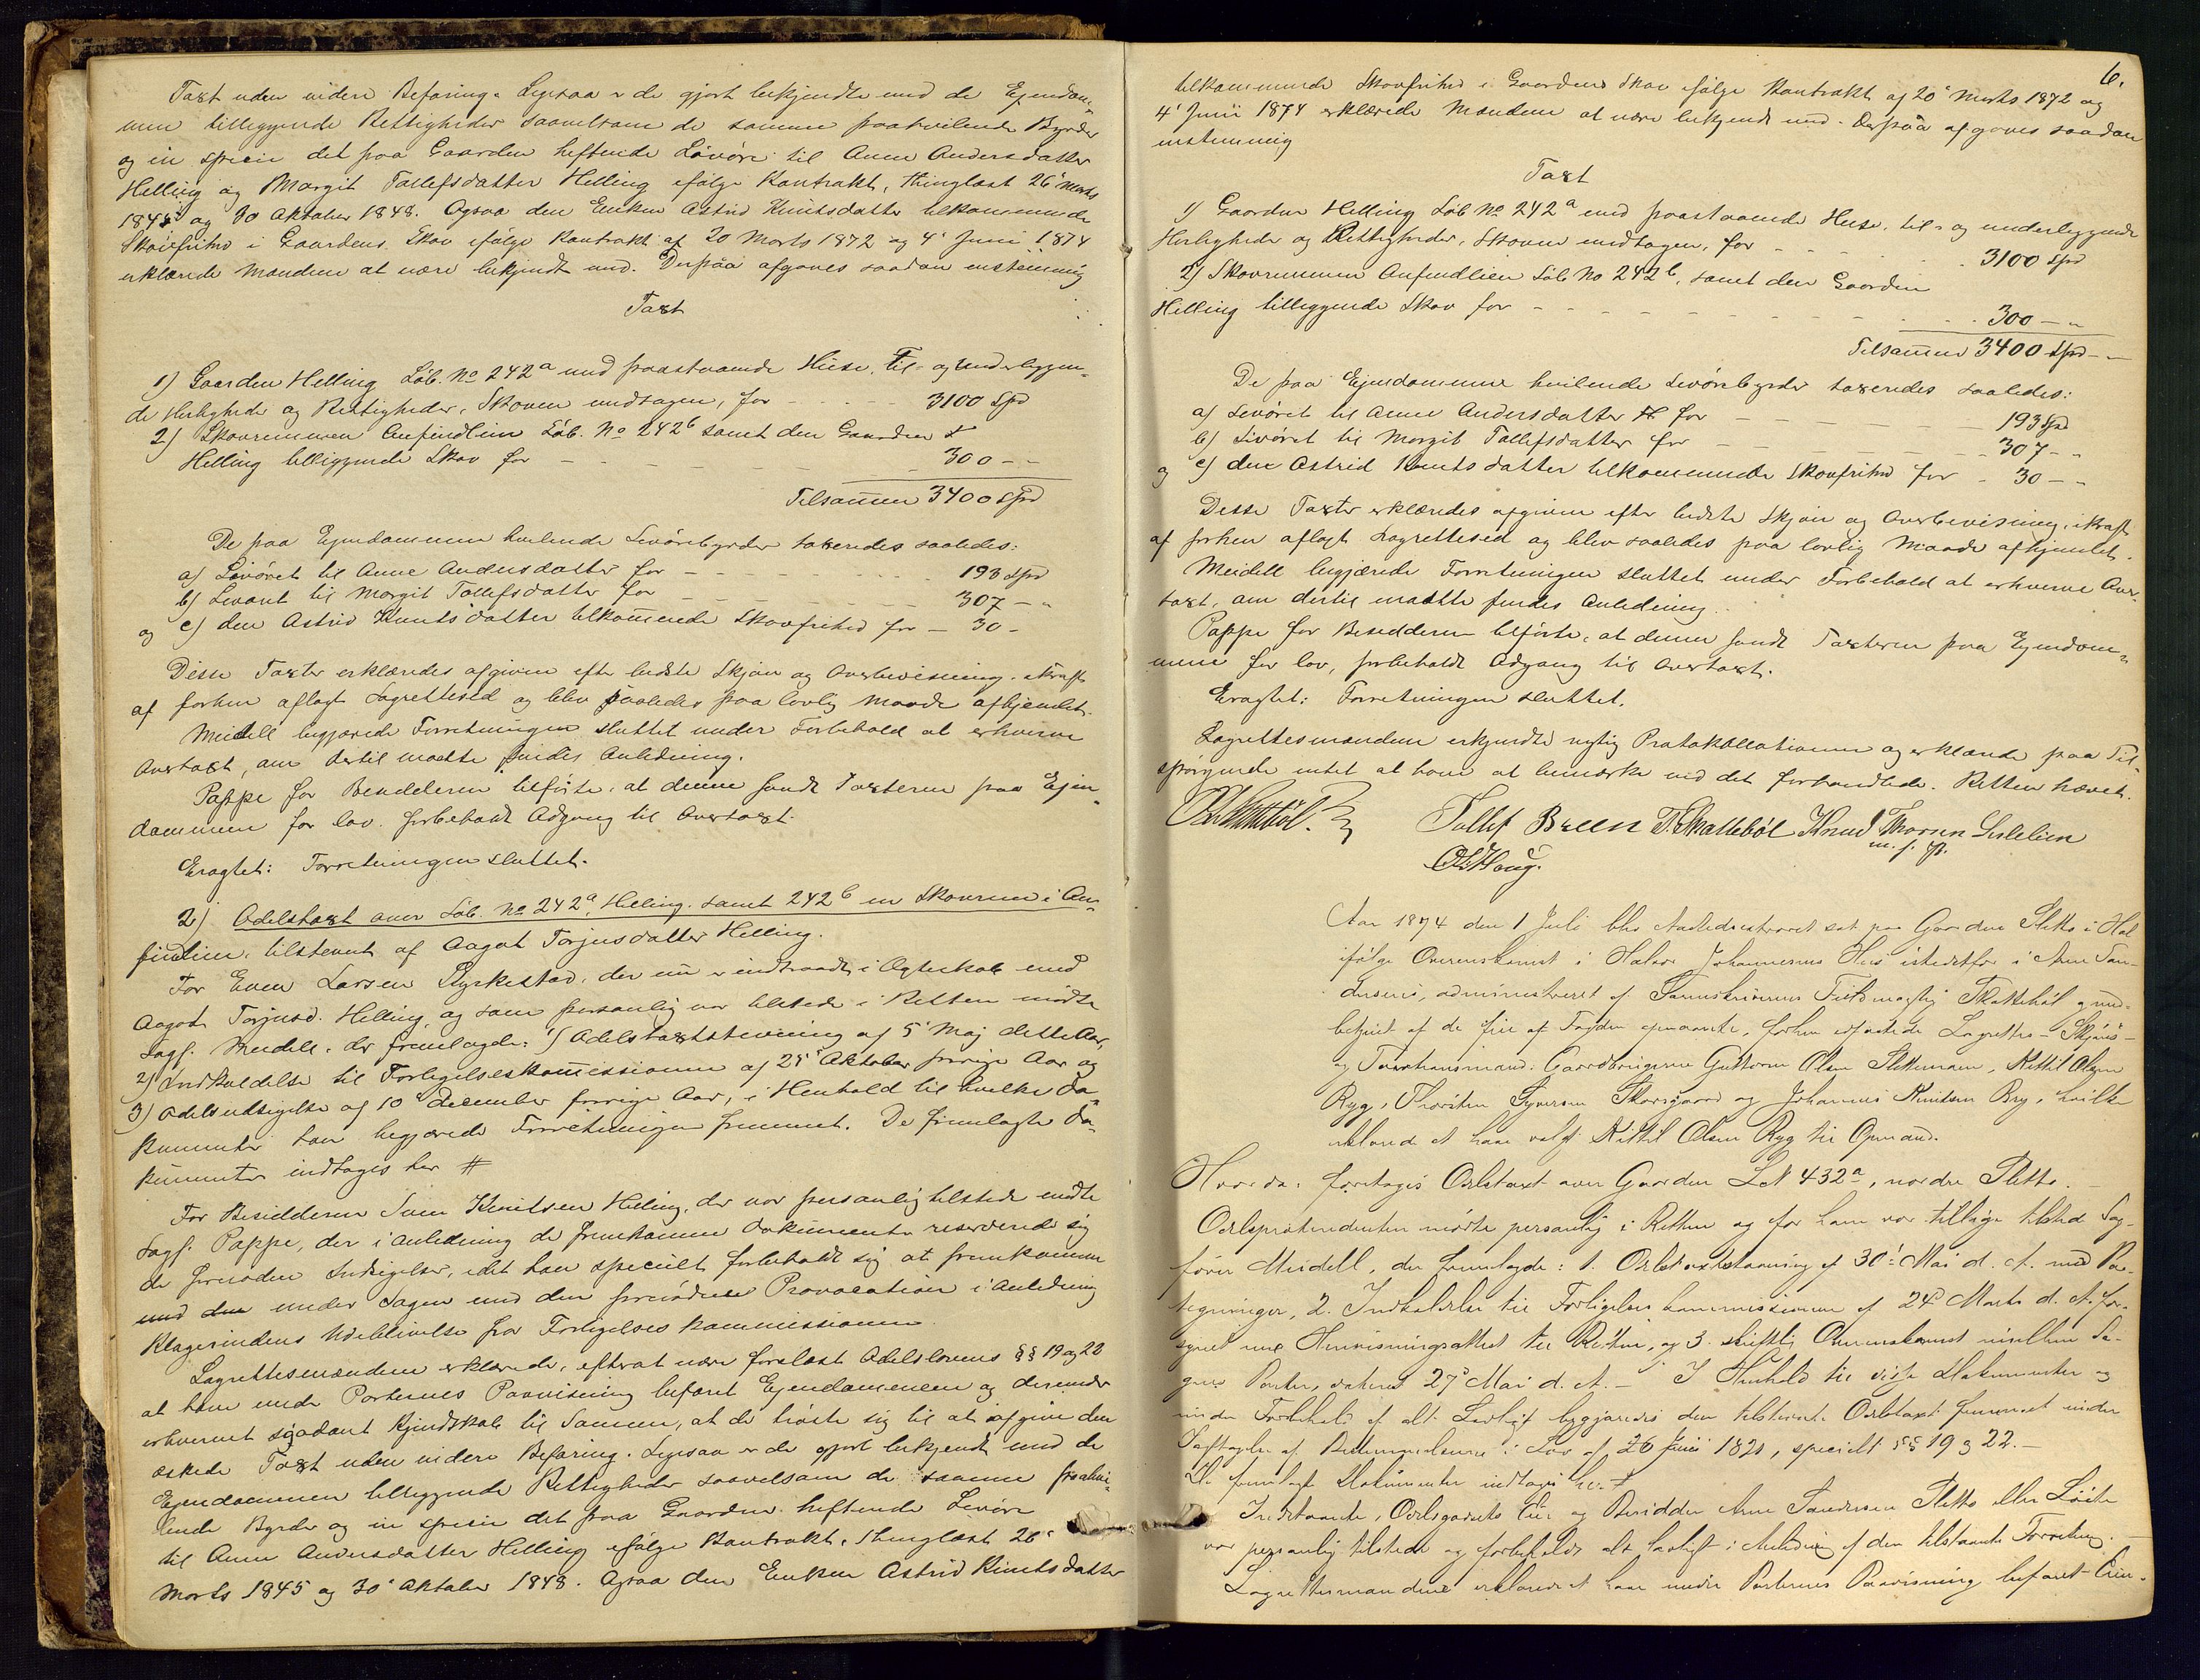 Taxt uden videre Befaring. Ligesaa er de gjort bekjendte med de Ejendom-
mene tilleggende Rettigheder saavelsom de samme paahvilende Byrder
og in specie det paa Gaarden heftende Livøre til Anne Andersdatter
Helling og Margit Tollefsdatter Helling ifølge Kontrakt, thinglæst 26' Marts
1845 og 30 Oktober 1848. Ogsaa den Enken Astrid Knutsdatter tilkommende
Skovfrihed i Gaardens Skov ifølge Kontrakt af 20 Marts 1872 og 4' Juni 1874
erklærede Mændene at være bekjendt med. Derpaa afgaves saadan enstemmig
Taxt
1) Gaarden Helling Løb. No 242a med paastaaende Huse, til- og underliggen-
de Herligheder og Rettigheder, Skoven undtagen, for - - - 3100 Spd
2) Skovremmen Anfindlien Løb. No 242b samt den Gaarden
Helling tilliggende Skov for - - - 300 - -
Tilsammen 3400 Spd
De paa Ejendommen hvilende Livørebyrder taxeredes saaledes:
a) Livøret til Anne Andersdatter for - - - 193 Spd
b) Livøret til Margit Tollefsdatter for - - - 307 - "
og c) den Astrid Knutsdatter tilkommende Skovfrihed for - 30 -
Disse Taxter erklæredes afgivne efter bedste Skjøn og Overbevisning, i Kraft
af forhen aflagt Lagrettesed og blev saaledes paa lovlig Maade afhjemlet.
Meidell begjærede Forretningen sluttet under Forbehold at erhverve
Overtaxt, om dertil maatte findes Anledning.
Pappe for Besidderen tilførte, at denne fandt Taxterne paa Ejen-
dommen for lav. forbeholdt Adgang til Overtaxt.
Eragtet: Forretningen sluttet.
2) Odelstaxt over Løb. No 242a, Helling, samt 242b en Skovrem i An-
findlien, tilstevnt af Aagot Torjusdatter Helling.
For Even Larsen Styrkestad, der nu er indtraadt i Ægteskab med
Aagot Torjusd. Helling, og som personlig var tilstede i Retten mødte
Sagf. Meidell, der fremlagde: 1) Odelstaxtstevning af 5' Maj dette Aar,
2) Indkaldelse til Forligelseskommissionen af 25' Oktober forrige Aar og
3) Odelsudsigelse af 10' December forrige Aar, i Henhold til hvilke Do-
kumenter han begjærede Forretningen fremmet. De fremlagte Do-
kumenter indtages her #
For Besidderen Sven Knutsen Helling, der var personlig tilstede mødte
Sagf. Pappe, der i Anledning de fremkomne Dokumenter reserverede sig
de fornødne Indsigelser, idet han specielt forbeholdt sig at fremkomme
med den under Sagen med den fornødne Provocation i Anledning
Klagerindens Udeblivelse fra Forligelseskommissionen.
Lagrettesmændene erklærede, efterat være forelæst Odelslovens §§ 19 og 22
at have under Parternes Paavisning befaret Ejendommen og derunder
erhvervet saadant Kjendskab til Samme, at de trøste sig til at afgive den
æskede Taxt uden videre Befaring. Ligesaa er de gjort bekjendt med de
Ejendommen tilleggende Rettigheder saavelsom de samme paahvi-
lende Byrder og in specie det paa Gaarden heftende Livøre
til Anne Andersdatter Helling ifølge Kontrakt, thinglæst 26'
Marts 1845 og 30' Oktober 1848. Ogsaa den Enken Astrid Knutsdatter
6.
tilkommende Skovfrihed i Gaardens Skov ifølge Kontrakt af 20' Marts 1872 og
4' Juni 1874 erklærede Mændene at være bekjendt med. Derpaa afgaves saadan
enstemmig
Taxt
1) Gaarden Helling Løb No 242a med paastaaende Huse, til- og underliggende
Herligheder og Rettigheder, Skoven undtagen, for - - - 3100 Spd
2) Skovremmen Anfindlien Løb No 242b, samt den Gaarden
Helling tilliggende Skov for - - - 300 - "
Tilsammen 3400 Spd - "
De paa Ejendommene hvilende Livørebyrder taxeredes saaledes:
a) Livøret til Anne Andersdatter for - - - 193 Spd
b) Livøret til Margit Tollefsdatter for - - - 307 - "
og c) den Astrid Knutsdatter tilkommende Skovfrihed for - 30 - "
Disse Taxter erklæredes afgivne efter bedste Skjøn og Overbevisning, i Kraft
af forhen aflagt Lagrettesed og blev saaledes paa lovlig Maade afhjemlet.
Meidell begjærede Forretningen sluttet under Forbehold at erhverve Over-
taxt, om dertil maatte findes Anledning.
Pappe for Besidderen tilførte, at denne fandt Taxterne paa Ejendom-
mene for lav, forbeholdt Adgang til Overtaxt.
Eragtet: Forretningen sluttet.
Lagrettesmændene erkjendte rigtig Protokollationen og erklærede paa Til-
spørgende intet at have at bemærke ved det forhandlede. Retten hævet.
Tollef Breen T. Skattebøl Knud Thoresen Lislelien
m. f. P.
O. Haug.
Aar 1874 den 1 Juli blev Aastedsretten sat paa Gaarden Sletto i Hol
ifølge Overenskomst i Halvor Johannesens Hus istedetfor i Arne San-
dersens, administreret af Sorenskriverens Fuldmægtig Skattebøl og med-
betjent af de fire af Fogden opnævnte, forhen edfæstede Lagrettes- Skjøns-
og Taxationsmænd: Gaardbrugerne Guttorm Olsen Slettemoen, Kittil Olsen
Ryg, Thorsten Syversen Skorsgaard og Johannes Knudsen Bry, hvilke
erklærede at have valgt Kittil Olsen Ryg til Opmand.
Hvor da: foretages Odelstaxt over Gaarden LN 432a, nordre Sletto.
Odelsprætendenten mødte personlig i Retten og for ham var tillige tilsted Sag-
fører Meidell, der fremlagde: 1. Odelstaxtstævning af 30' Mai d. A. med Paa-
tegninger, 2. Indkaldelse til Forligelseskommissionen af 24d Marts d. A. for-
synet med Henvisningsattest til Retten, og 3. skriftlig Overenskomst mellem Sa-
gens Parter, dateret 27' Mai d. A. - I Henhold til disse Dokumenter og
under Forbehold af alt Lovligt begjæredes den tilstevnte Odelstaxt fremmet under
Iagttagelse af Bestemmelserne i Lov af 26 Juni 1821, specielt §§ 19 og 22. -
De fremlagte Dokumenter indtages her #
Indstævnte, Odelsgodsets Eier og Besidder Arne Sandersen Sletto eller Løite
var personlig tilstede og forbeholdt alt Lovligt i Anledning af den tilstævnte Forretning. -
Lagrettesmændene erklærede at have under Parternes Paavisning befaret Eien-